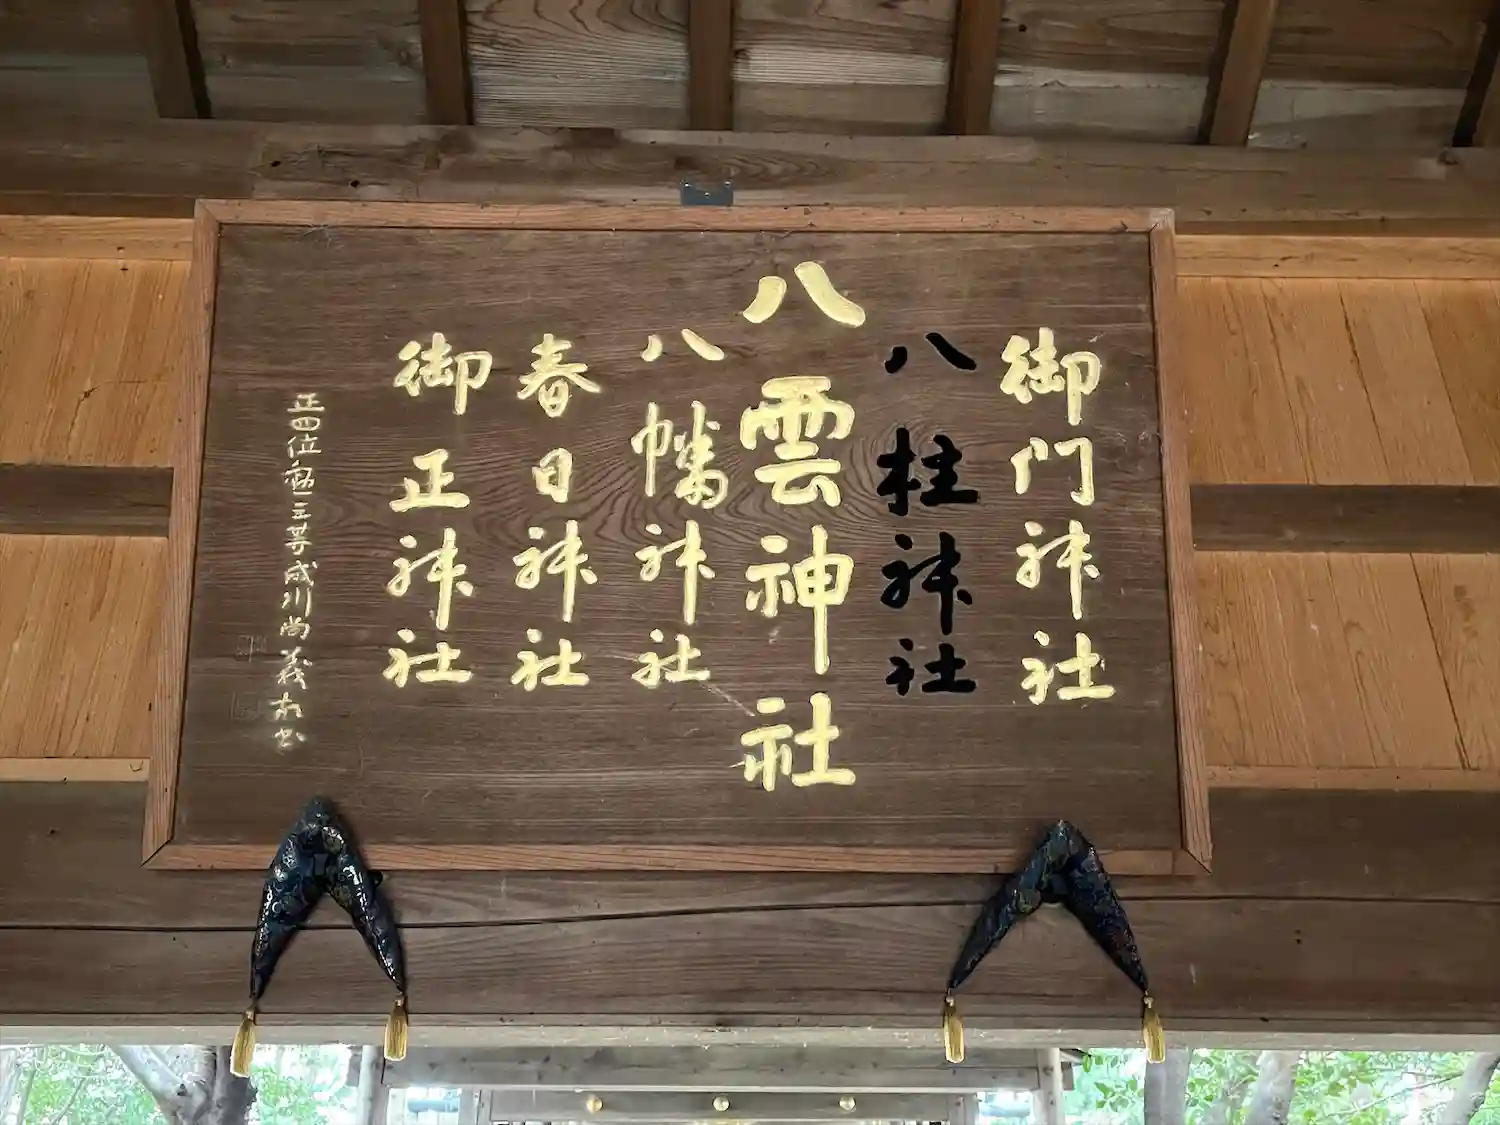 御門神社
八柱神社
八雲神社
八幡神社
春日神社
御正神社
正四位勲三等成川尚義拜書